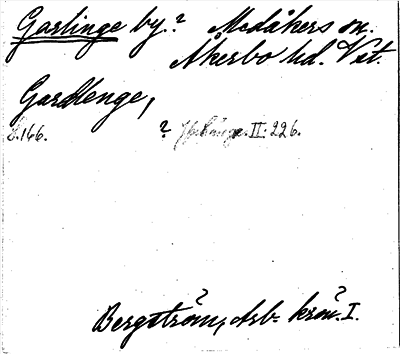 Garlinge by? Medåkers sn.
Åkerbo hd. Vst.
Gardlenge,
S. 166. ? II: 226.
Bergström, Arb. krön. I.